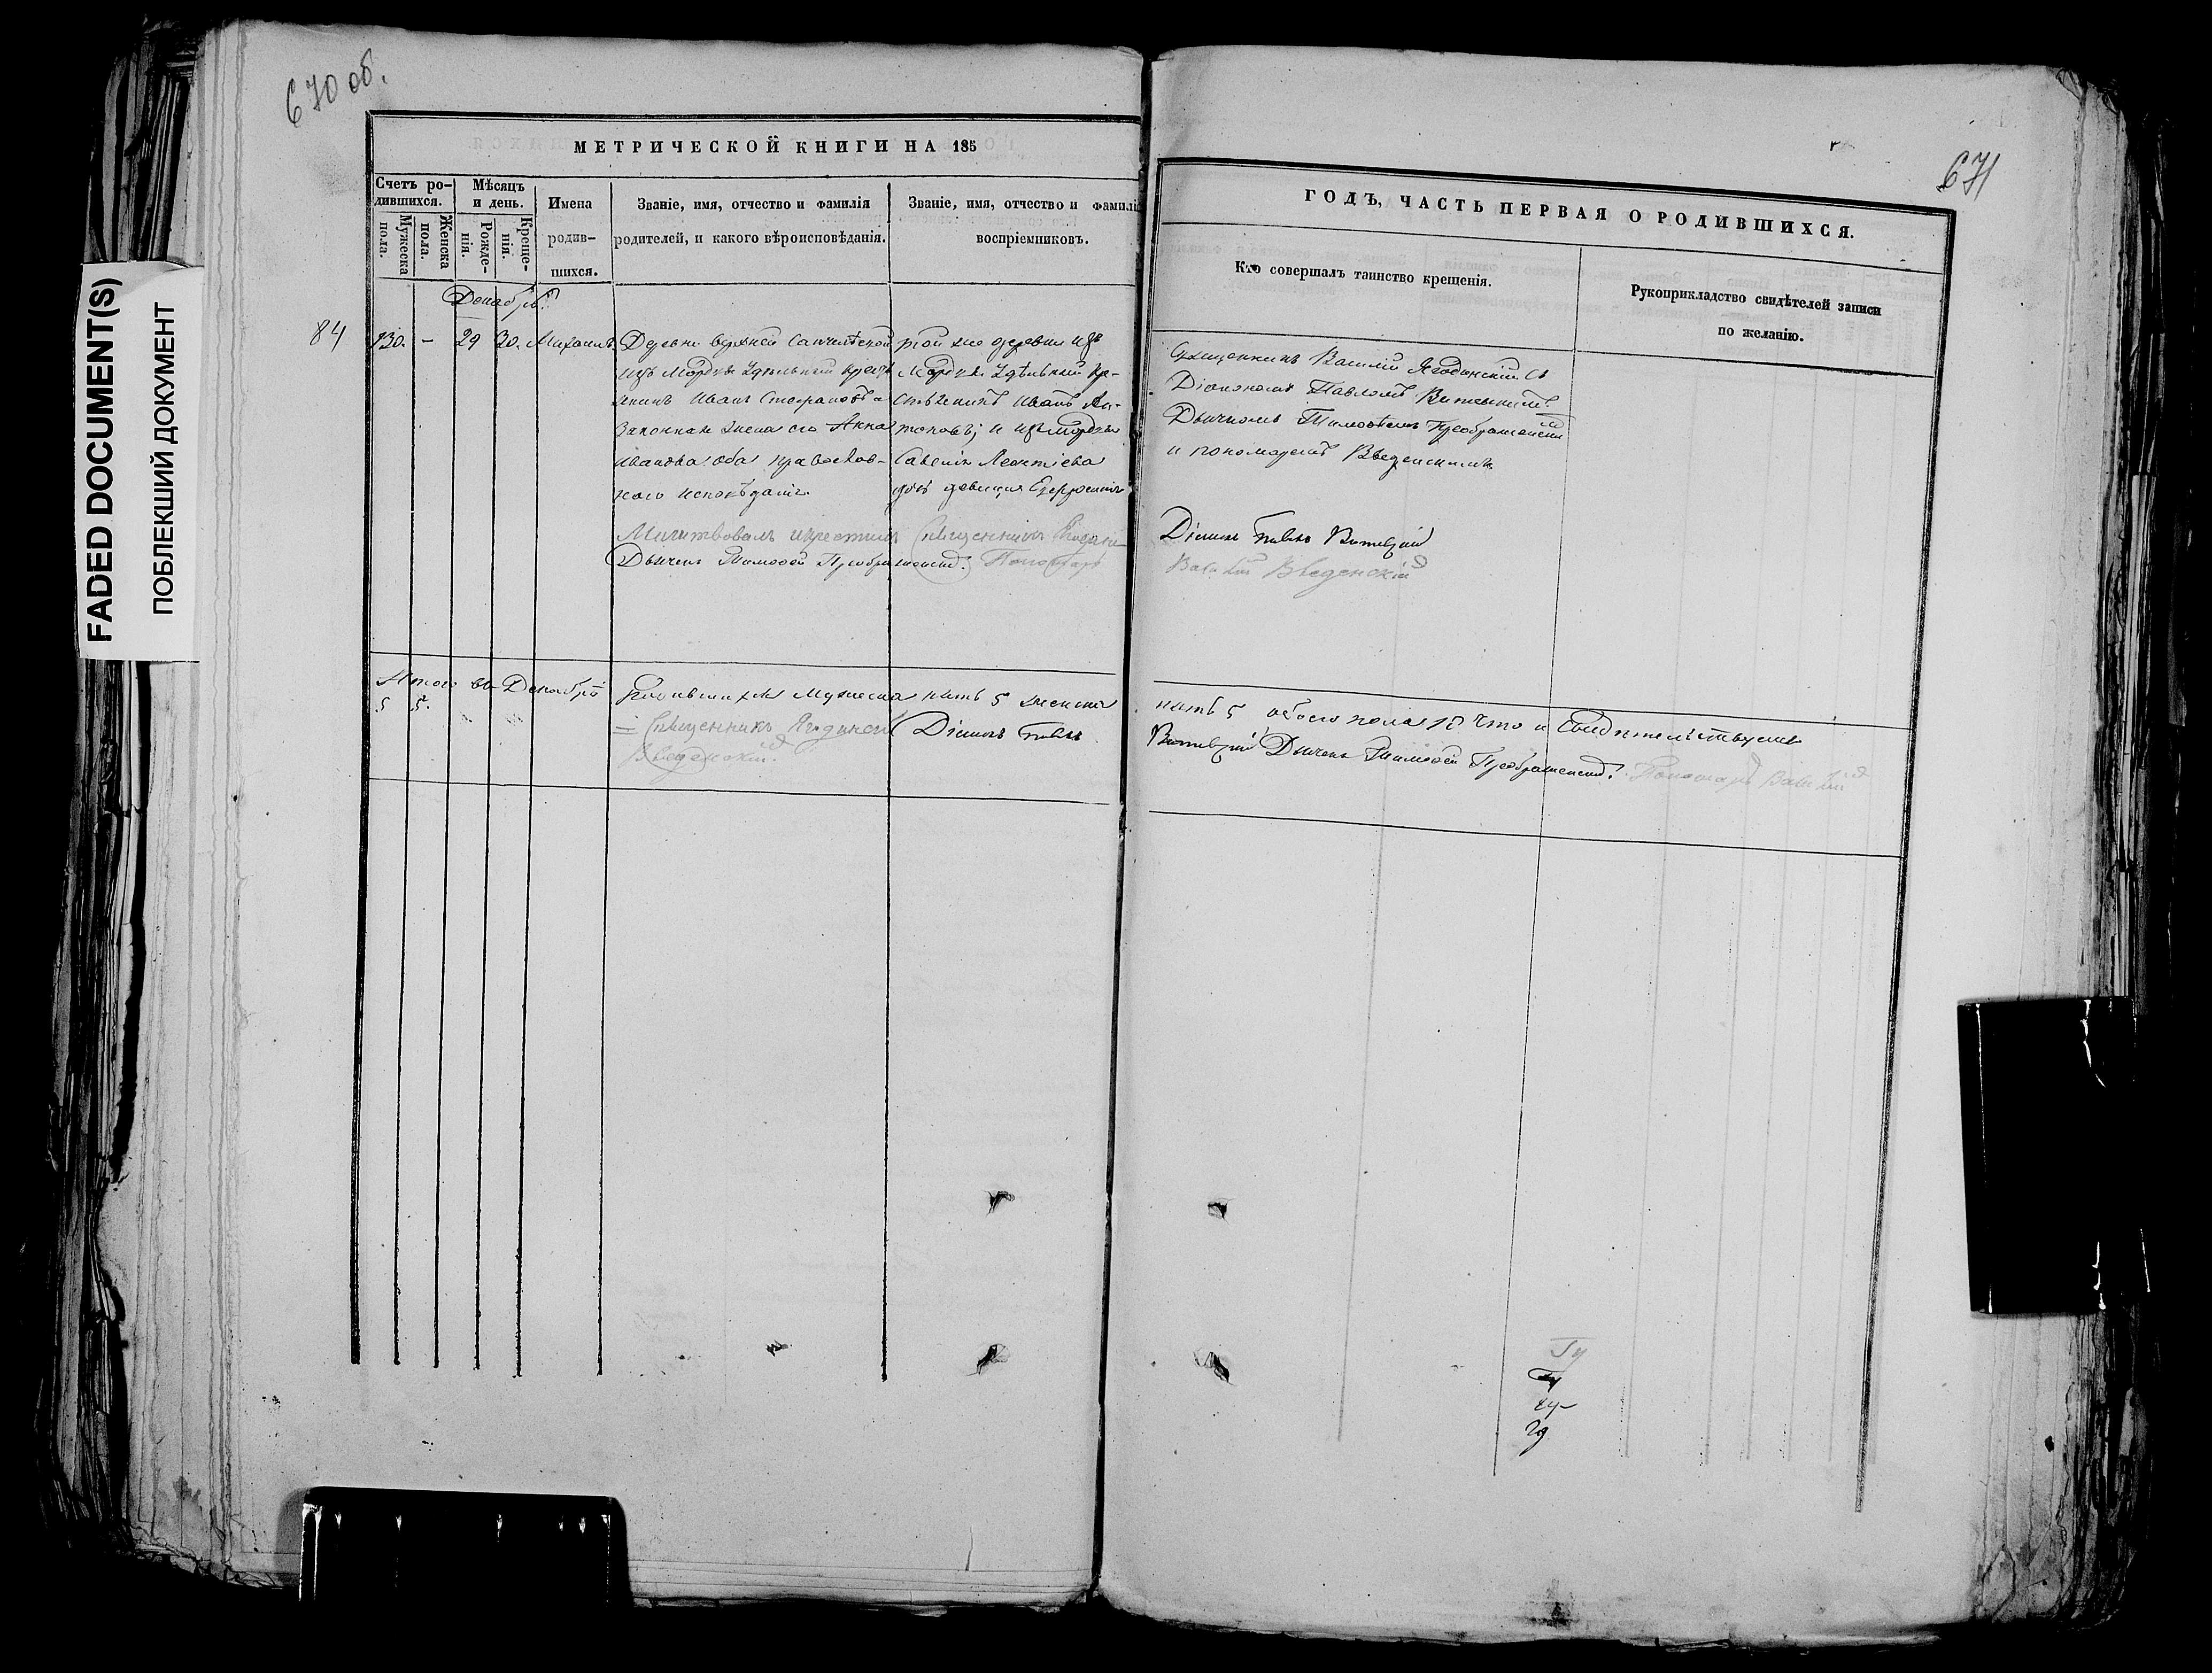 670 об.
671
FADED DOCUMENT(S)
ПОБЛЕКШИЙ ДОКУМЕНТ
МЕТРИЧЕСКОЙ КНИГИ НА 185
Счетъ ро-
дившихся.
Мужеска
пола.
Женска
пола.
Мѣсяцъ
и день.
Рожде-
нія.
Креще-
нія.
Имена
родив-
шихся.
Званіе, имя, отчество и фамилія
родителей, и какого вѣроисповѣданія.
Званіе, имя, отчество и фамилі
воспріемниковъ.
Декабрь
84
130. - 29 30. Михаилъ
Деревни верхней
изъ Мордвы Удѣльный крест
янинъ Иванъ Стефановъ и
Законная жена его Анна
Иванова оба православ-
наго исповѣданія.
той же деревни изъ
Мордвы Удѣльный кре-
стьянинъ Иванъ
и изъ Мордвы
Савелія Леонтіева
дочь девица
Молитвовалъ и крестилъ Священникъ
Дьячекъ Тимофей Преображенскій. Пономарь
Итого въ Декабрѣ родившихся мужеска пять 5 женска
5 5.
Священникъ Ягодинскій Діаконъ Павелъ
Введенскій.
ГОДЪ, ЧАСТЬ ПЕРВАЯ О РОДИВШИХСЯ.
Кто совершалъ таинство крещенія.
Рукоприкладство свидѣтелей записи
по желанію.
Священникъ Василій Ягодинскій съ
Діакономъ Павломъ
Дьячкомъ Тимофѣемъ Преображенским
и пономаремъ Введенскимъ.
Діаконъ Павелъ
Василій Введенскій
пять 5 обоего пола 10 что и свидѣтельствуемъ
Дьячекъ Тимофей Преображенскій. Пономарь Василій